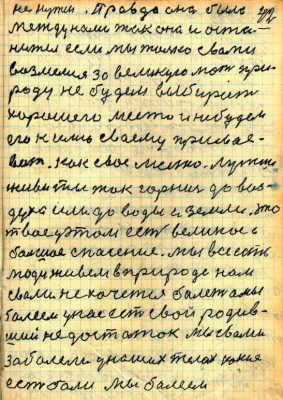 не нужен. Правда она была
между нами так она и оста-
нится если мы только с вами
возмемся за великую мать при-
роду не будем выбирать
хорошего места и небудем
его к им своему присваe-
вать. как свое место. Лучши
живи ты так горния до воз-
духа или до воды и земли. это
твое в этом есть великое и
балшое спасение. мы все есть
люди живем в природе нам
с вами не хочется балеть а мы
балеем у нас есть свой родив-
ший недостаток мы с вами
заболели у наших телах
есть бали мы балеем